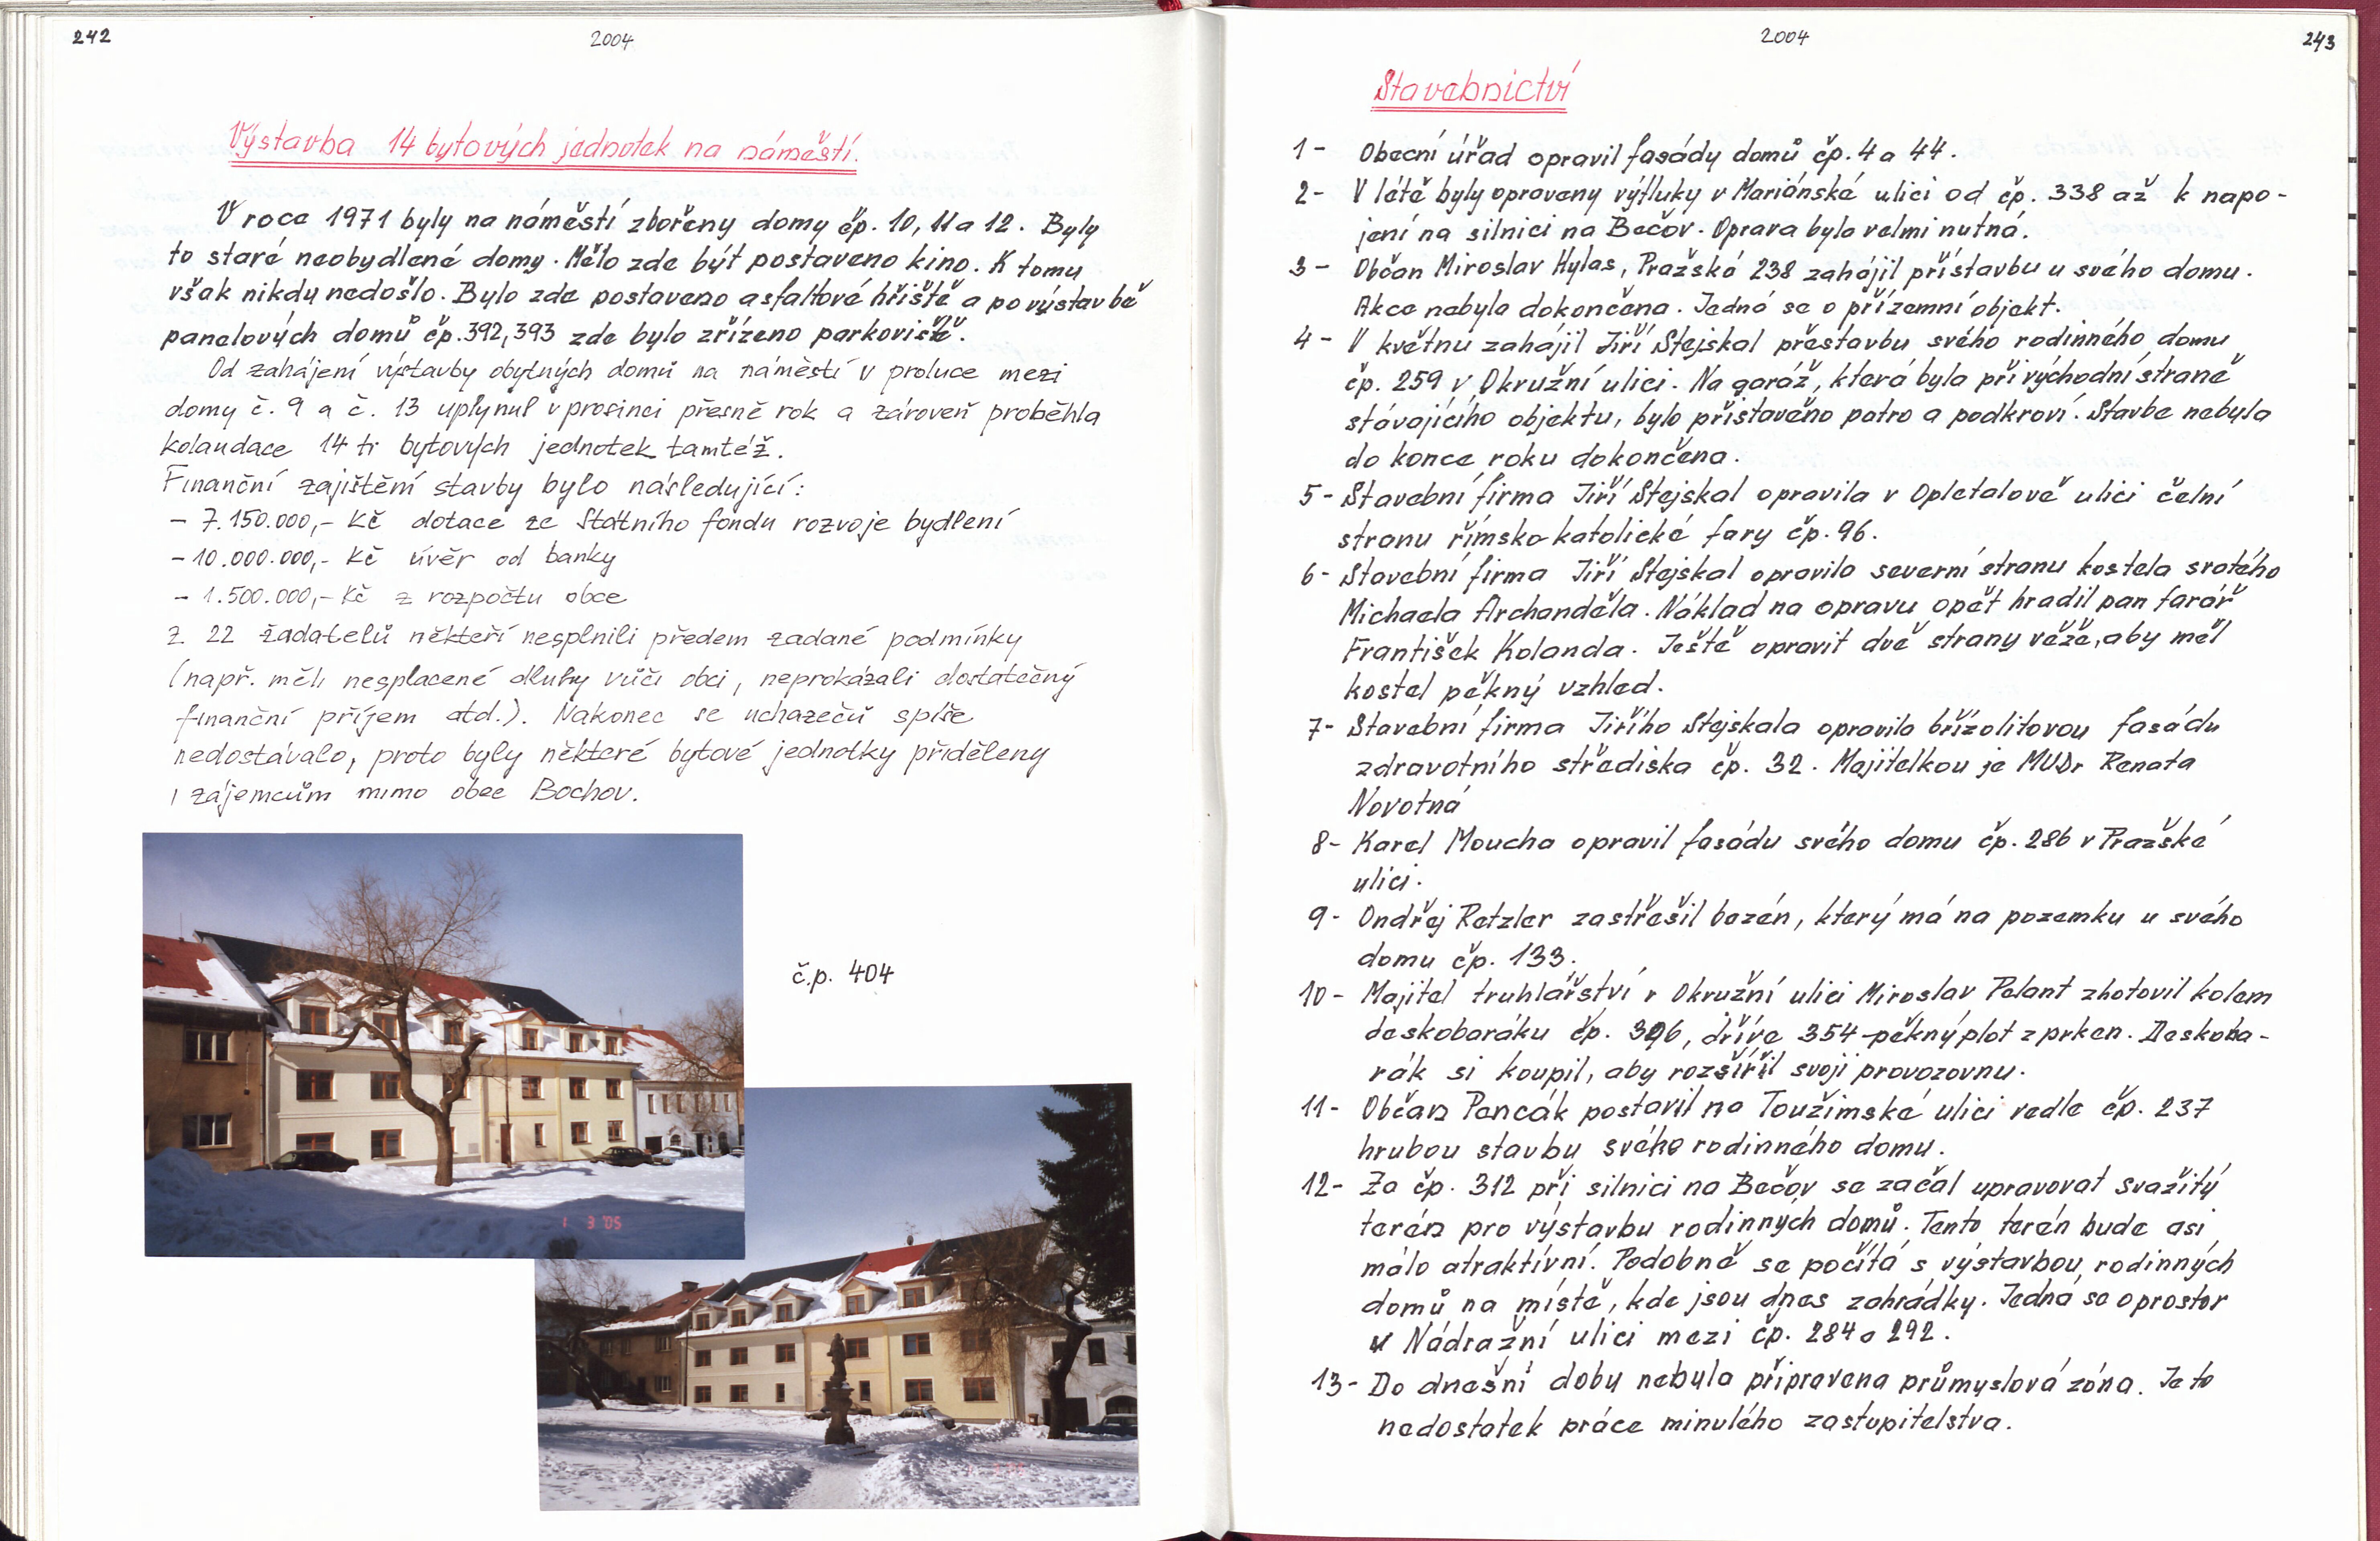 242
2004
Výstavba 14 bytových jednotek na náměstí.
V roce 1971 byly na náměstí zbořeny domy čp. 10, 11 a 12. Byly
to staré neobydlené domy. Mělo zde být postaveno kino. K tomu
však nikdy nedošlo. Bylo zde postaveno asfaltové hřiště a po výstavbě
panelových domů čp. 392, 393 zde bylo zřízeno parkoviště.
Od zahájení výstavby obytných domů na náměstí v proluce mezi
domy č. 9 a č. 13 uplynul v prosinci přesně rok a zároveň proběhla
kolaudace 14 ti bytových jednotek tamtéž.
Finanční zajištění stavby bylo následující:
- 7.150.000,- Kč dotace ze Státního fondu rozvoje bydlení
- 10.000.000,- Kč úvěr od banky
- 1.500.000,- Kč z rozpočtu obce
Z 22 žadatelů někteří nesplnili předem zadané podmínky
(např. měli nesplacené dluhy vůči obci, neprokázali dostatečný
finanční příjem atd.). Nakonec se uchazečů spíše
nedostávalo, proto byly některé bytové jednotky přiděleny
i zájemcům mimo obec Bochov.
č.p. 404
1 3 '05
2004
243
Stavebnictví
1- Obecní úřad opravil fasády domů čp. 4 a 44.
2- V létě byly opraveny výtluky v Mariánské ulici od čp. 338 až k napo-
jení na silnici na Bečov. Oprava byla velmi nutná.
3- Občan Miroslav Hylas, Pražská 238 zahájil přístavbu u svého domu.
Akce nebyla dokončena. Jedná se o přízemní objekt.
4- V květnu zahájil Jiří Stejskal přestavbu svého rodinného domu
čp. 259 v Okružní ulici. Na garáž, která byla při východní straně
stávajícího objektu, bylo přistavěno patro a podkroví. Stavba nebyla
do konce roku dokončena.
5- Stavební firma Jiří Stejskal opravila v Opletalově ulici čelní
stranu římsko-katolické fary čp. 96.
6- Stavební firma Jiří Stejskal opravila severní stranu kostela svatého
Michaela Archanděla. Náklad na opravu opět hradil pan farář
František Kolanda. Ještě opravit dvě strany věže, aby měl
kostel pěkný vzhled.
7- Stavební firma Jiřího Stejskala opravila břízolitovou fasádu
zdravotního střediska čp. 32. Majitelkou je MUDr Renata
Novotná
8- Karel Moucha opravil fasádu svého domu čp. 286 v Pražské
ulici.
9- Ondřej Retzler zastřešil bazén, který má na pozemku u svého
domu čp. 133.
10- Majitel truhlářství v Okružní ulici Miroslav Pelant zhotovil kolem
deskobaráku čp. 396, dříve 354 - pěkný plot z prken. Deskoba-
rák si koupil, aby rozšířil svoji provozovnu.
11- Občan Pencák postavil na Toužimské ulici vedle čp. 237
hrubou stavbu svého rodinného domu.
12- Za čp. 312 při silnici na Bečov se začal upravovat svažitý
terén pro výstavbu rodinných domů. Tento terén bude asi
málo atraktívní. Podobně se počítá s výstavbou rodinných
domů na místě, kde jsou dnes zahrádky. Jedná se o prostor
v Nádražní ulici mezi čp. 284 a 292.
13- Do dnešní doby nebyla připravena průmyslová zóna. Je to
nedostatek práce minulého zastupitelstva.